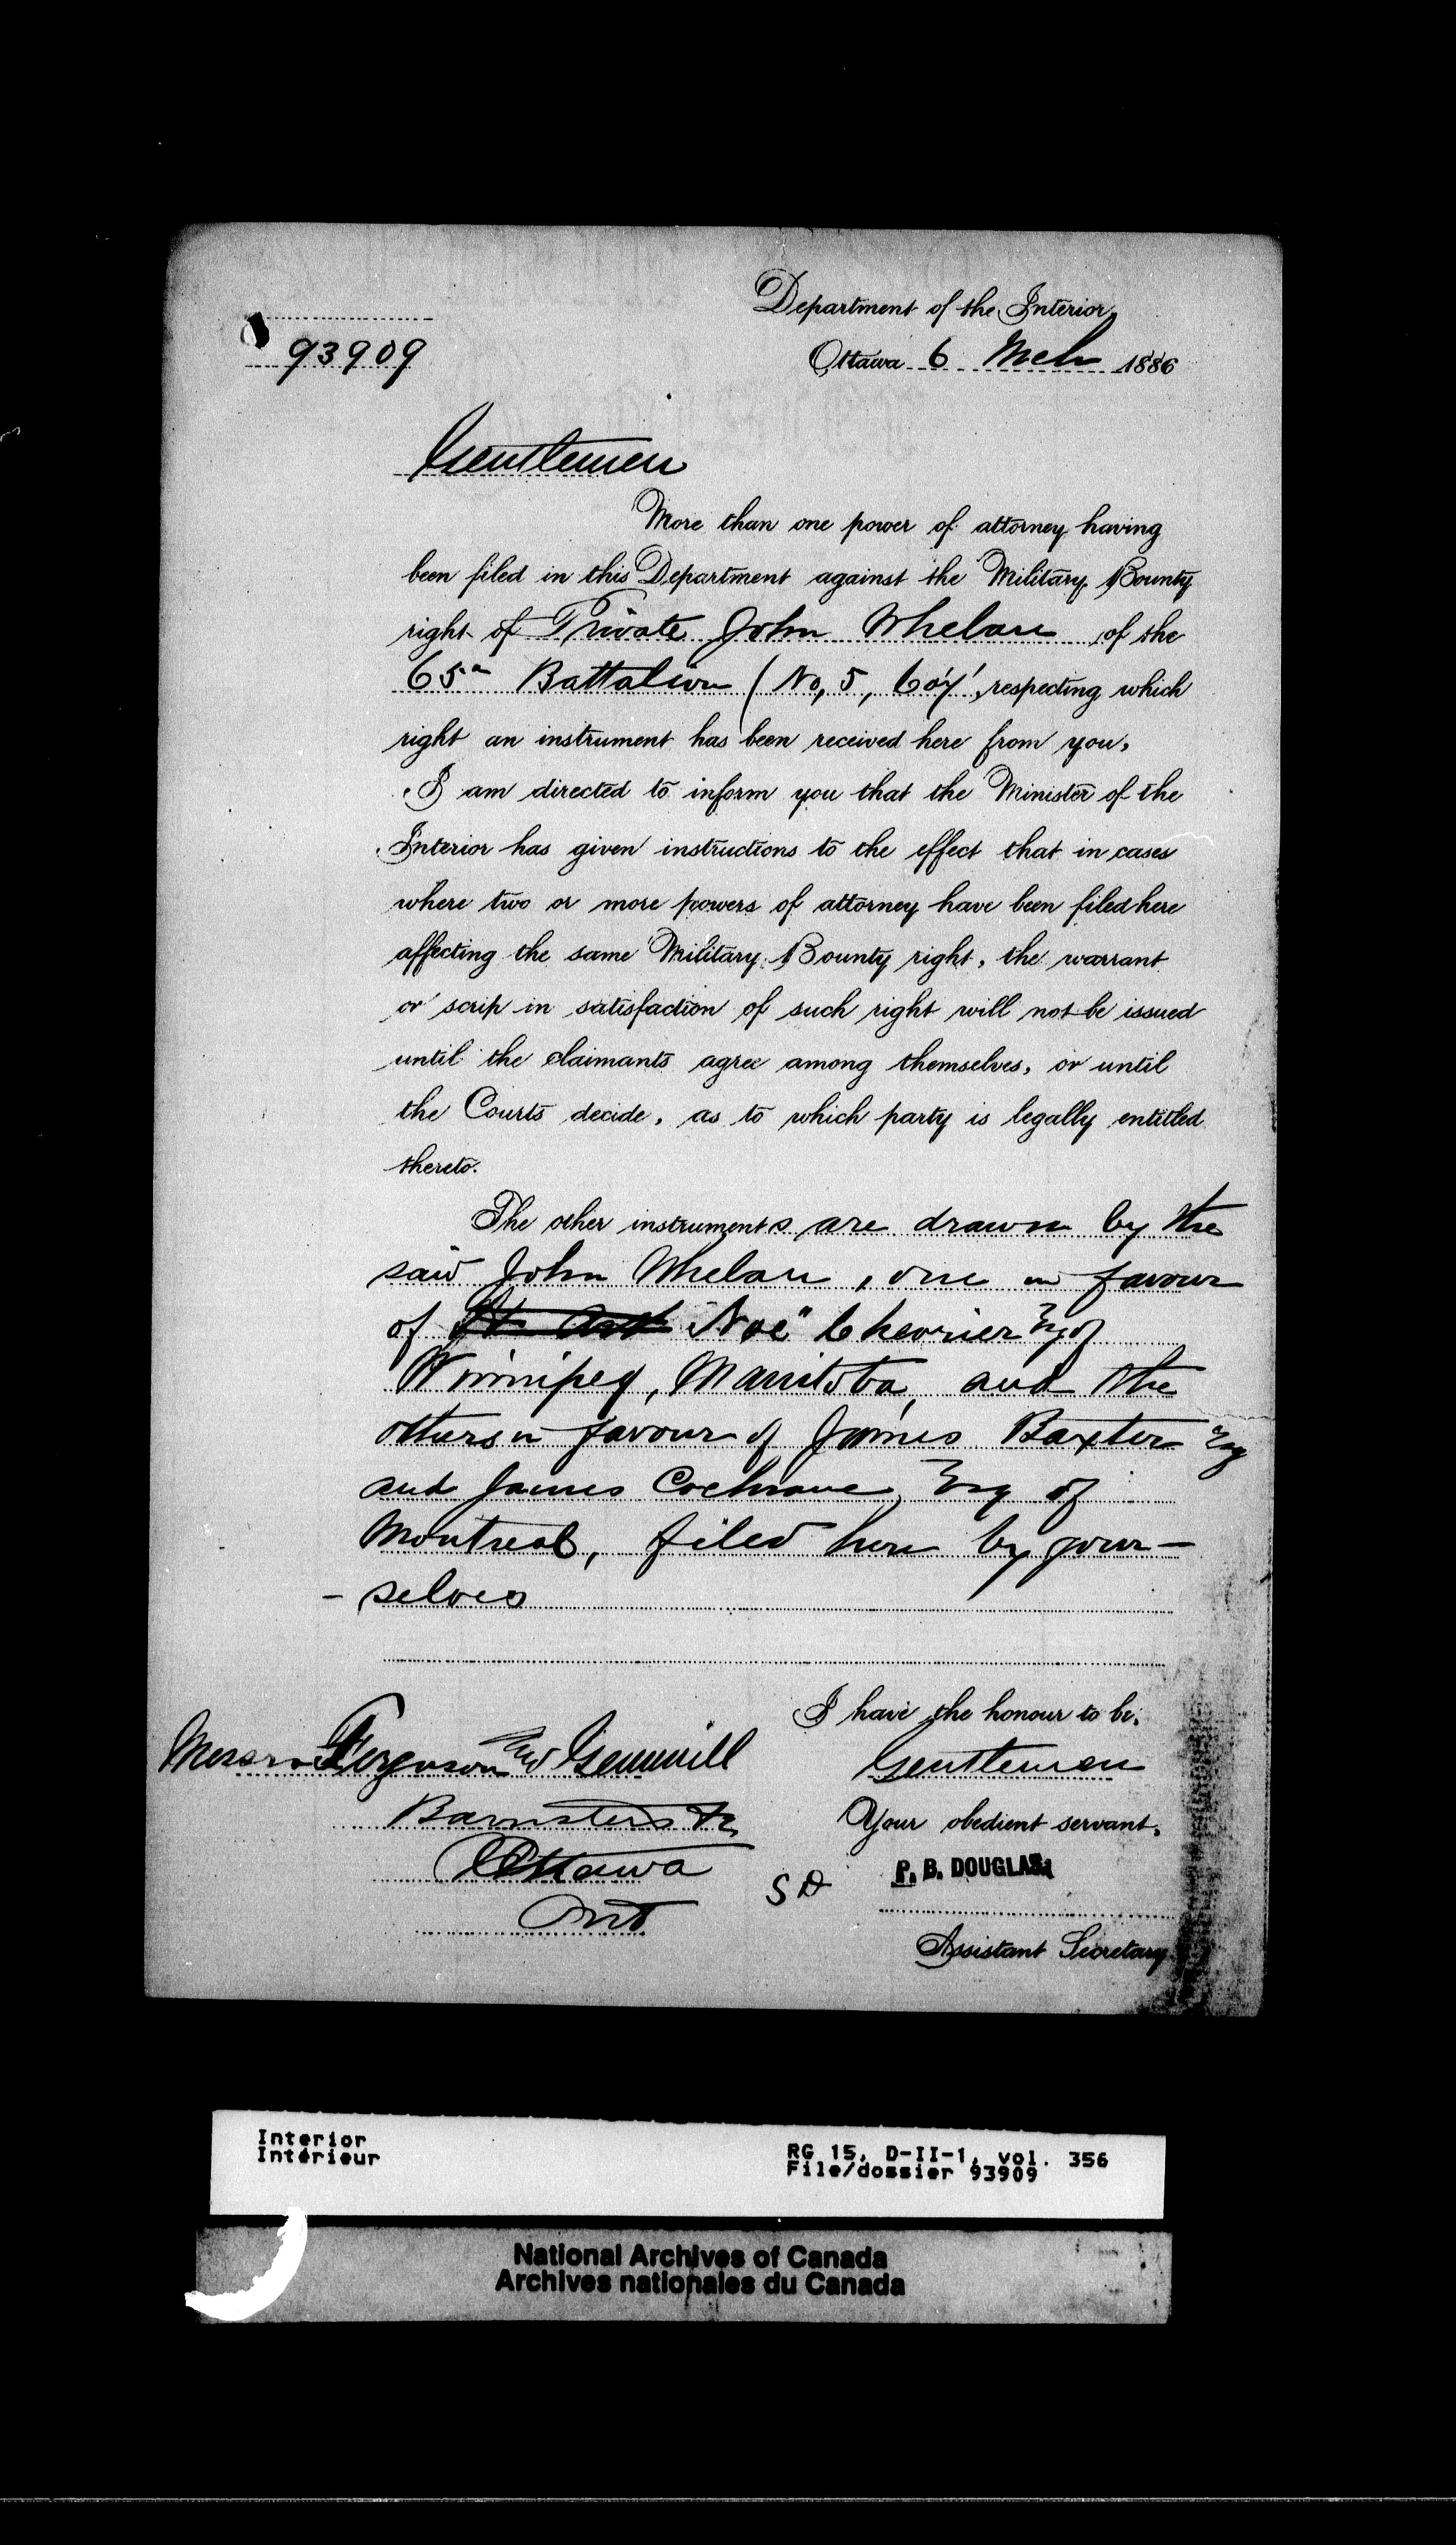 Department of the Interior,
93909
Ottawa 6 Mch 1886
Gentlemen
More than one power of attorney having
been filed in this Department against the Military Bounty
right of Private John Whelan of the
65th Battalion (No, 5, Co'y', respecting which
right an instrument has been received here from you,
I am directed to inform you that the Minister of the
Interior has given instructions to the effect that in cases
where two or more powers of attorney have been filed here
affecting the same Military Bounty right, the warrant
or scrip in satisfaction of such right will not be issued
until the claimants agree among themselves, or until
the Courts decide, as to which party is legally entitled
thereto.
The other instruments are drawn by the
said John Whelan, one in favour
of Noë Chevrier Esq of
Winnipeg, Manitoba, and the
others in favour of James Baxter Esq
and James Cochrane, Esq of
Montreal, filed here by your-
-selves
I have the honour to be,
Messrs Ferguson and Gemmill
Gentlemen
Barristers &c
Your obedient servant,
Ottawa
SD P. B. DOUGLAS,
Ont
Assistant Secretary
Interior
Intérieur
RG 15, D-II-1, vol. 356
File/dossier 93909
National Archives of Canada
Archives nationales du Canada